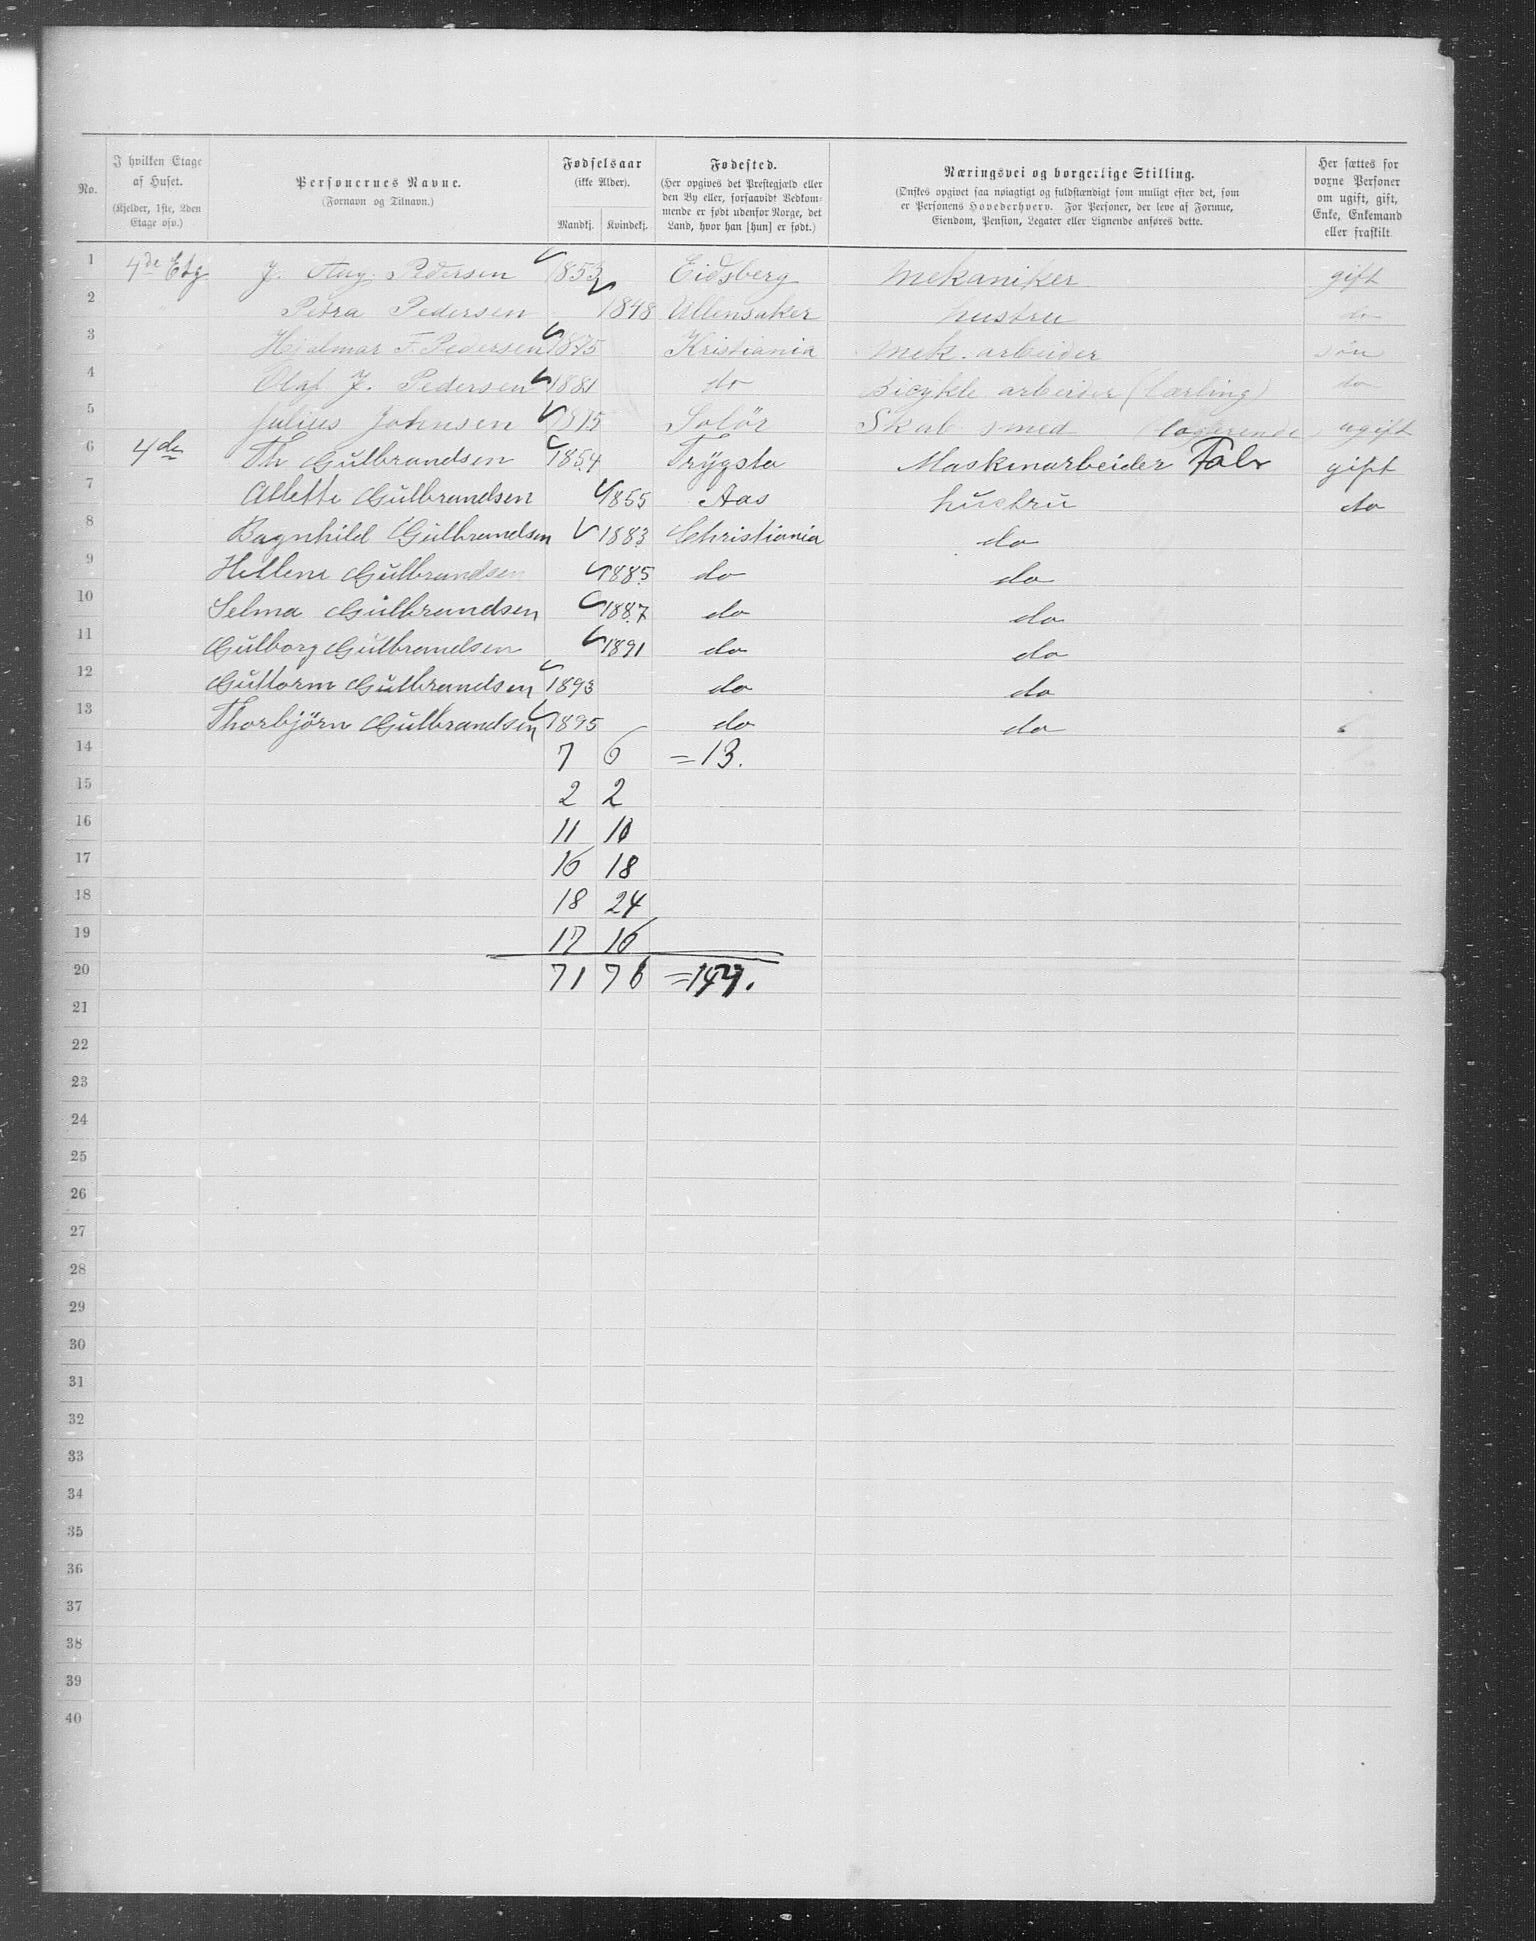 No. | I hvilken Etage af Huset. (Kjelder, 1ste, 2den Etage osv.) | Personernes Navne. (Fornavn og Tilnavn.) | Fødselsaar (ikke Alder). Mandkj. | Kvindekj. | Fødested. (Her opgives det Prestegjæld eller den By eller, forsaavidt Vedkommende er født udenfor Norge, det Land, hvor han [hun] er født.) | Næringsvei og borgerlige Stilling. (Ønskes opgivet saa nøiagtigt og fuldstændigt som muligt efter det, som er Personens Hovederhverv. For Personer, der leve af Formue, Eiendom, Pension, Legater eller Lignende anføres dette. | Her sættes for vorne Personer om ugift, gift, Enke, Enkemand eller fraskilt
1 4de Etg J. Aug. Pedersen 1853 Eidsberg Mekaniker gift
2 Petra Pedersen 1848 Ullensaker hustru do
3 Hjalmar F. Pedersen 1875 Kristiania Mek. arbeider søn
4 Olaf J. Pedersen 1881 do Bicykle arbeider (lærling) do
5 Julius Johnsen 1875 Solör Skab smed (logerende) ugift
6 4de Th Gulbrandsen 1854 Trygsta Maskinarbeider Fabr gift
7 Allette Gulbrandsen 1855 Aas hustru do
8 Ragnhild Gulbrandsen 1883 Christiania do
9 Hellene Gulbrandsen 1885 do do
10 Selma Gulbrandsen 1887 do do
11 Gulborg Gulbrandsen 1891 do do
12 Guttorm Gulbrandsen 1893 do do
13 Thorbjörn Gulbrandsen 1895 do do
14 7 6 =13.
15 2 2
16 11 10
17 16 18
18 18 24
19 17 16
20 71 76 =147.
21
22
23
24
25
26
27
28
29
30
31
32
33
34
35
36
37
38
39
40